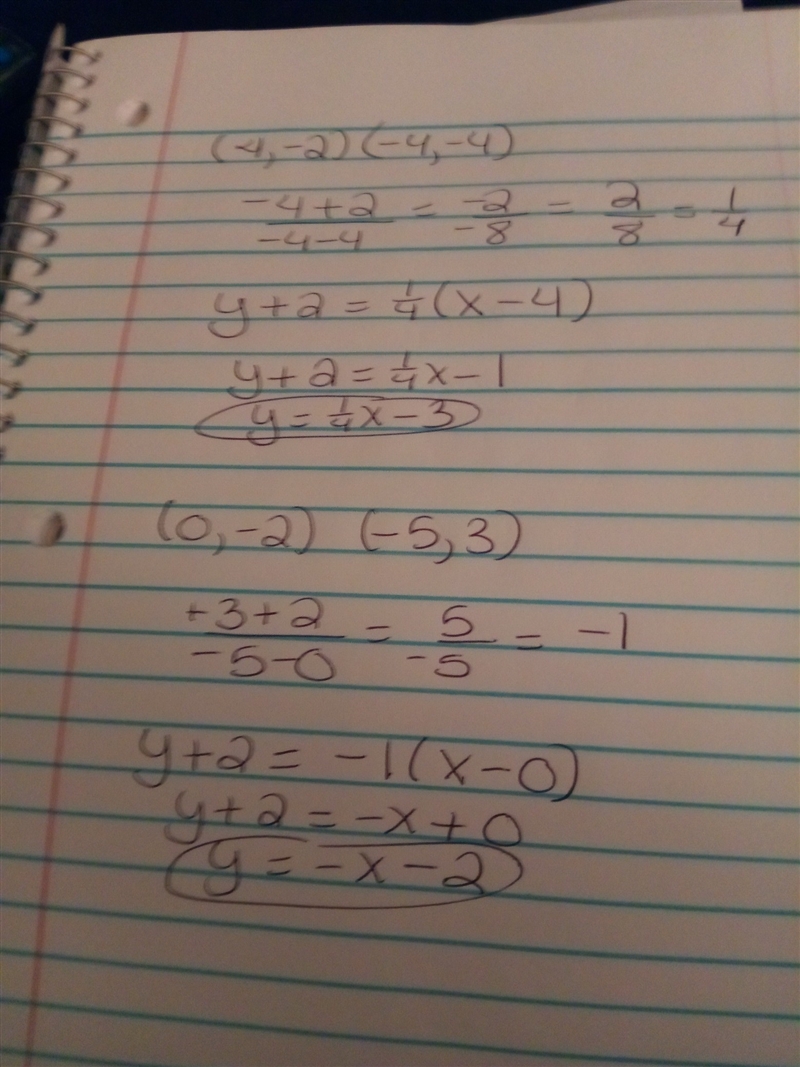 (4,-2) (-4,-4)
-4+2/-4-4 = -2/-8 = 2/8 = 1/4
y+2 = 1/4(x-4)
y+2 = 1/4x-1
y = 1/4x-3
(0,-2) (-5,3)
+3+2/-5-0 = 5/-5 = -1
y+2 = -1(x-0)
y+2 = -x+0
y = -x-2